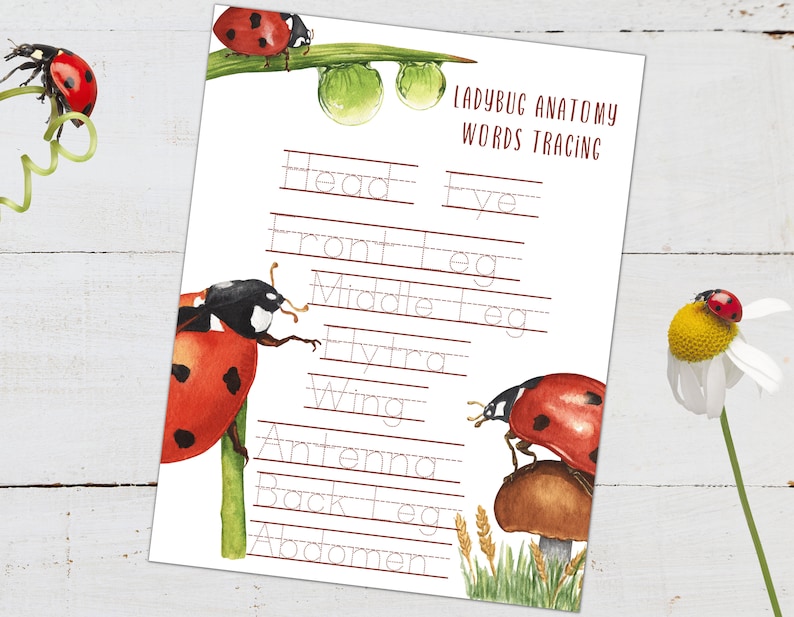 LADYBUG ANATOMY
WORDS TRACING
Head Eye
Front Leg
Middle Leg
Elytra
Wing
Antenna
Back Leg
Abdomen